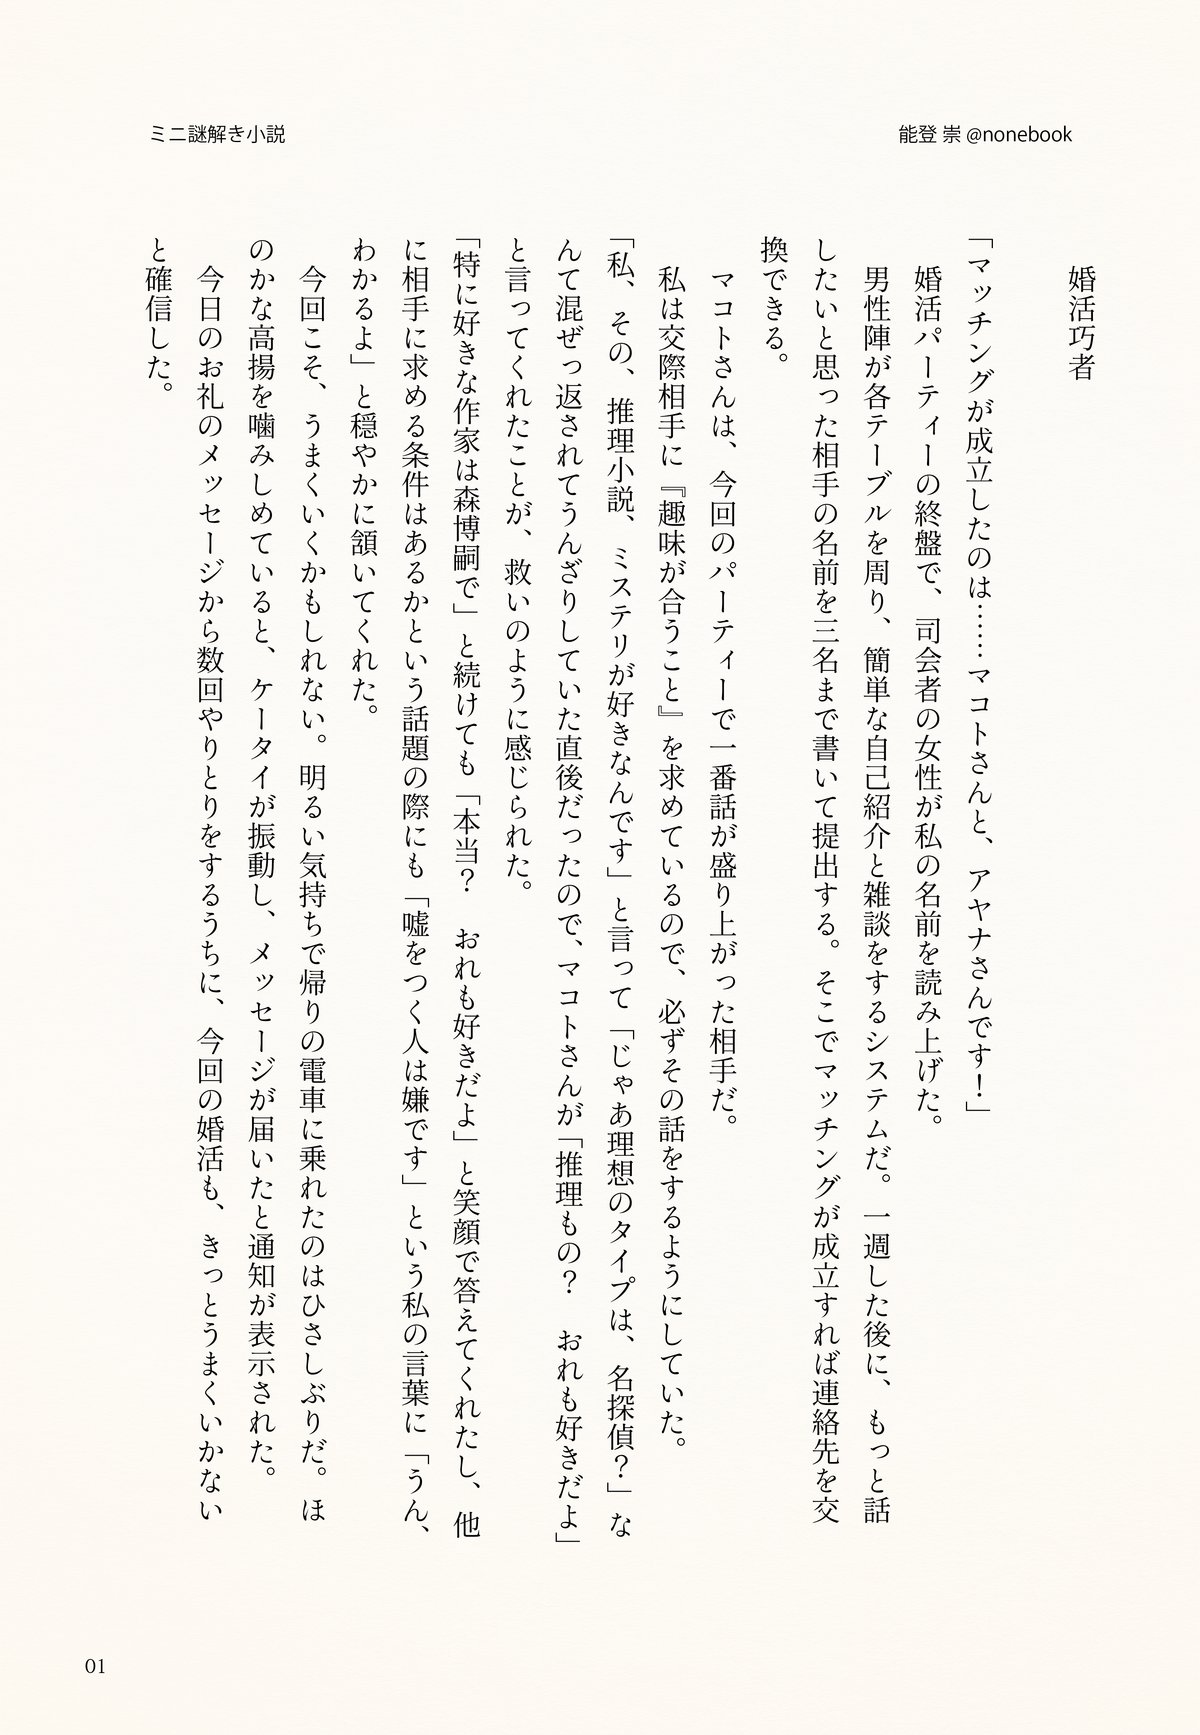 ミニ謎解き小説
能登 崇 @nonebook
婚活巧者
「マッチングが成立したのは……マコトさんと、アヤナさんです！」
婚活パーティーの終盤で、司会者の女性が私の名前を読み上げた。
男性陣が各テーブルを周り、簡単な自己紹介と雑談をするシステムだ。一週した後に、もっと話
したいと思った相手の名前を三名まで書いて提出する。そこでマッチングが成立すれば連絡先を交
換できる。
マコトさんは、今回のパーティーで一番話が盛り上がった相手だ。
私は交際相手に『趣味が合うこと』を求めているので、必ずその話をするようにしていた。
「私、その、推理小説、ミステリが好きなんです」と言って「じゃあ理想のタイプは、名探偵？」な
んて混ぜっ返されてうんざりしていた直後だったので、マコトさんが「推理もの？　おれも好きだよ」
と言ってくれたことが、救いのように感じられた。
「特に好きな作家は森博嗣で」と続けても「本当？　おれも好きだよ」と笑顔で答えてくれたし、他
に相手に求める条件はあるかという話題の際にも「嘘をつく人は嫌です」という私の言葉に「うん、
わかるよ」と穏やかに頷いてくれた。
今回こそ、うまくいくかもしれない。明るい気持ちで帰りの電車に乗れたのはひさしぶりだ。ほ
のかな高揚を噛みしめていると、ケータイが振動し、メッセージが届いたと通知が表示された。
今日のお礼のメッセージから数回やりとりをするうちに、今回の婚活も、きっとうまくいかない
と確信した。
01